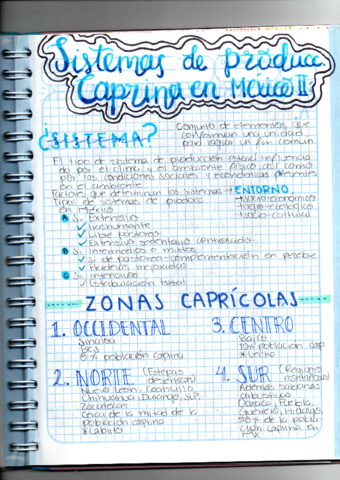 Sistemas de producc.
Caprina en México II
¿SISTEMA?
Conjunto de elementos que
conforman una unidad
para lograr un fin común.
El tipo de sistema de producción estará influencia
do por el clima y el ambiente físico, así como
por las condiciones sociales y económicas presentes
en el ambiente
Factores que determinan los sistemas → ENTORNO
Tipos de sistemas de producc
en México
→ socio-económico
→ agro-ecológico
→ socio-cultural
A S. Extensivo
✓ Trashumante
✓ Libre pastoreo
✓ Extensivo sedentario controlado
B S. Intermedios o mixtos
✓ S. de pastoreo-complementación en pesebre
✓ Praderas mejoradas
C S. Intensivos
✓ Estabulación total
ZONAS CAPRÍCOLAS
1. OCCIDENTAL
Sinaloa
BCS
8% población caprina
2. NORTE (Estepas
desérticas)
Nuevo León, Coahuila,
Chihuahua, Durango, SLP,
Zacatecas
Cerca de la mitad de la
población caprina
*Cabrito
3. CENTRO
Bajío
10% población cap
*Leche
4. SUR (Regiones
montañosas)
Además sabanas
arbustivas
Oaxaca, Puebla,
Guerrero, Hidalgo,
36% de la pobla-
ción caprina en